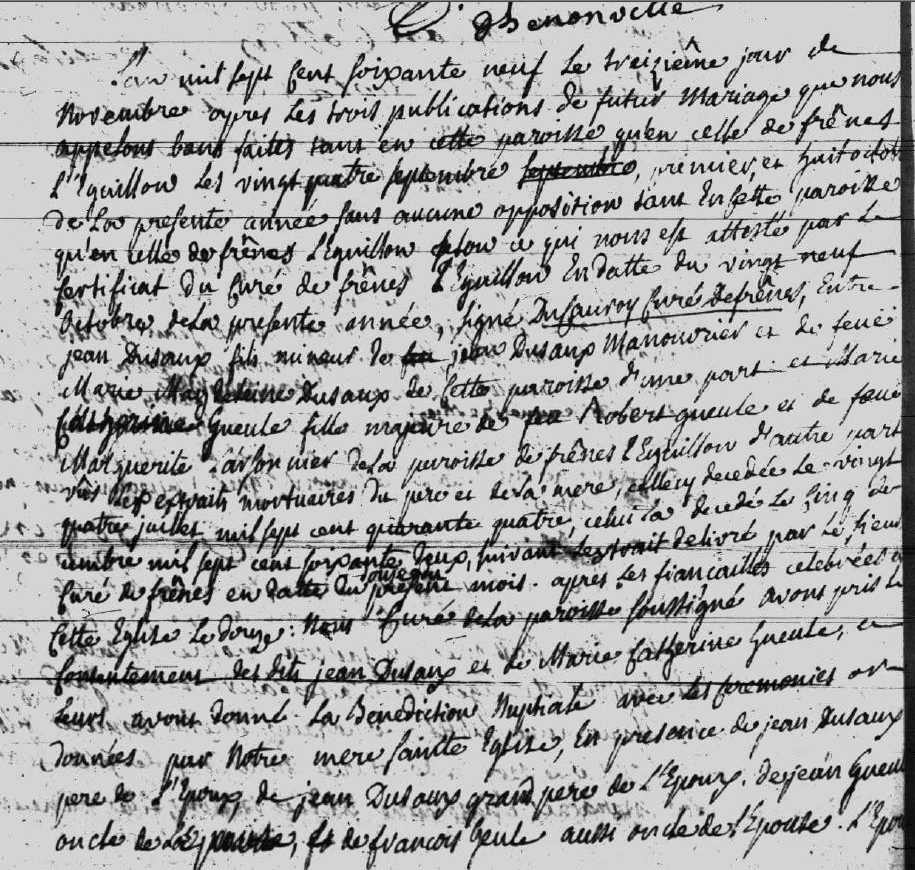 D. d'henonville
L'an mil sept Cent soixante neuf Le treizième jour de
Novembre apres Les trois publications de futur Mariage que nous
appelons bans faites tant en cette paroisse qu'en celle de frênes
L'Eguillon Les vingt quatre septembre septembre, premier, et huit octob
de La presente année sans aucune opposition tant En Cette paroisse
qu'en celle de frênes L'Eguillon selon ce qui nous est attesté par Le
Certificat du Curé de frênes L'Eguillon En datte du vingt neuf
Octobre de La presente année, signé Dusauroy Curé de frênes, Entre
jean Dusaux fils mineur de feu jean Dusaux Manouvrier et de feüe
Marie Magdeleine Dusaux de Cette paroisse d'une part et Marie
Catherine Gueule fille majeure de feu Robert gueule et de feüe
Marguerite de La paroisse de frênes L'Eguillon d'autre part
vûs Les extraits mortuaires du pere et de La mere, cellecy decedée Le vingt
quatre juillet mil sept cent quarante quatre, celui la decedé Le Cinq de
cembre mil sept cent soixante deux, suivant L'extrait delivré par Le Sieur
Curé de frênes en datte du present mois. apres Les fiançailles celebrées
Cette Eglise Le douze: Nous Curé de La paroisse soussigné avons pris Le
Consentement des dits jean Dusaux et de Marie Catherine Gueule, et
Leurs avons donné La Benediction Nuptiale avec Les Ceremonies or
données par Notre mere sainte Eglise, En presence de jean Dusaux
pere de L'Epoux, de jean Dusaux grand pere de L'Epoux. de jean Gueu
oncle de L'Epouse, Et de francois Geule aussi oncle de L'Epouse. L'Epou